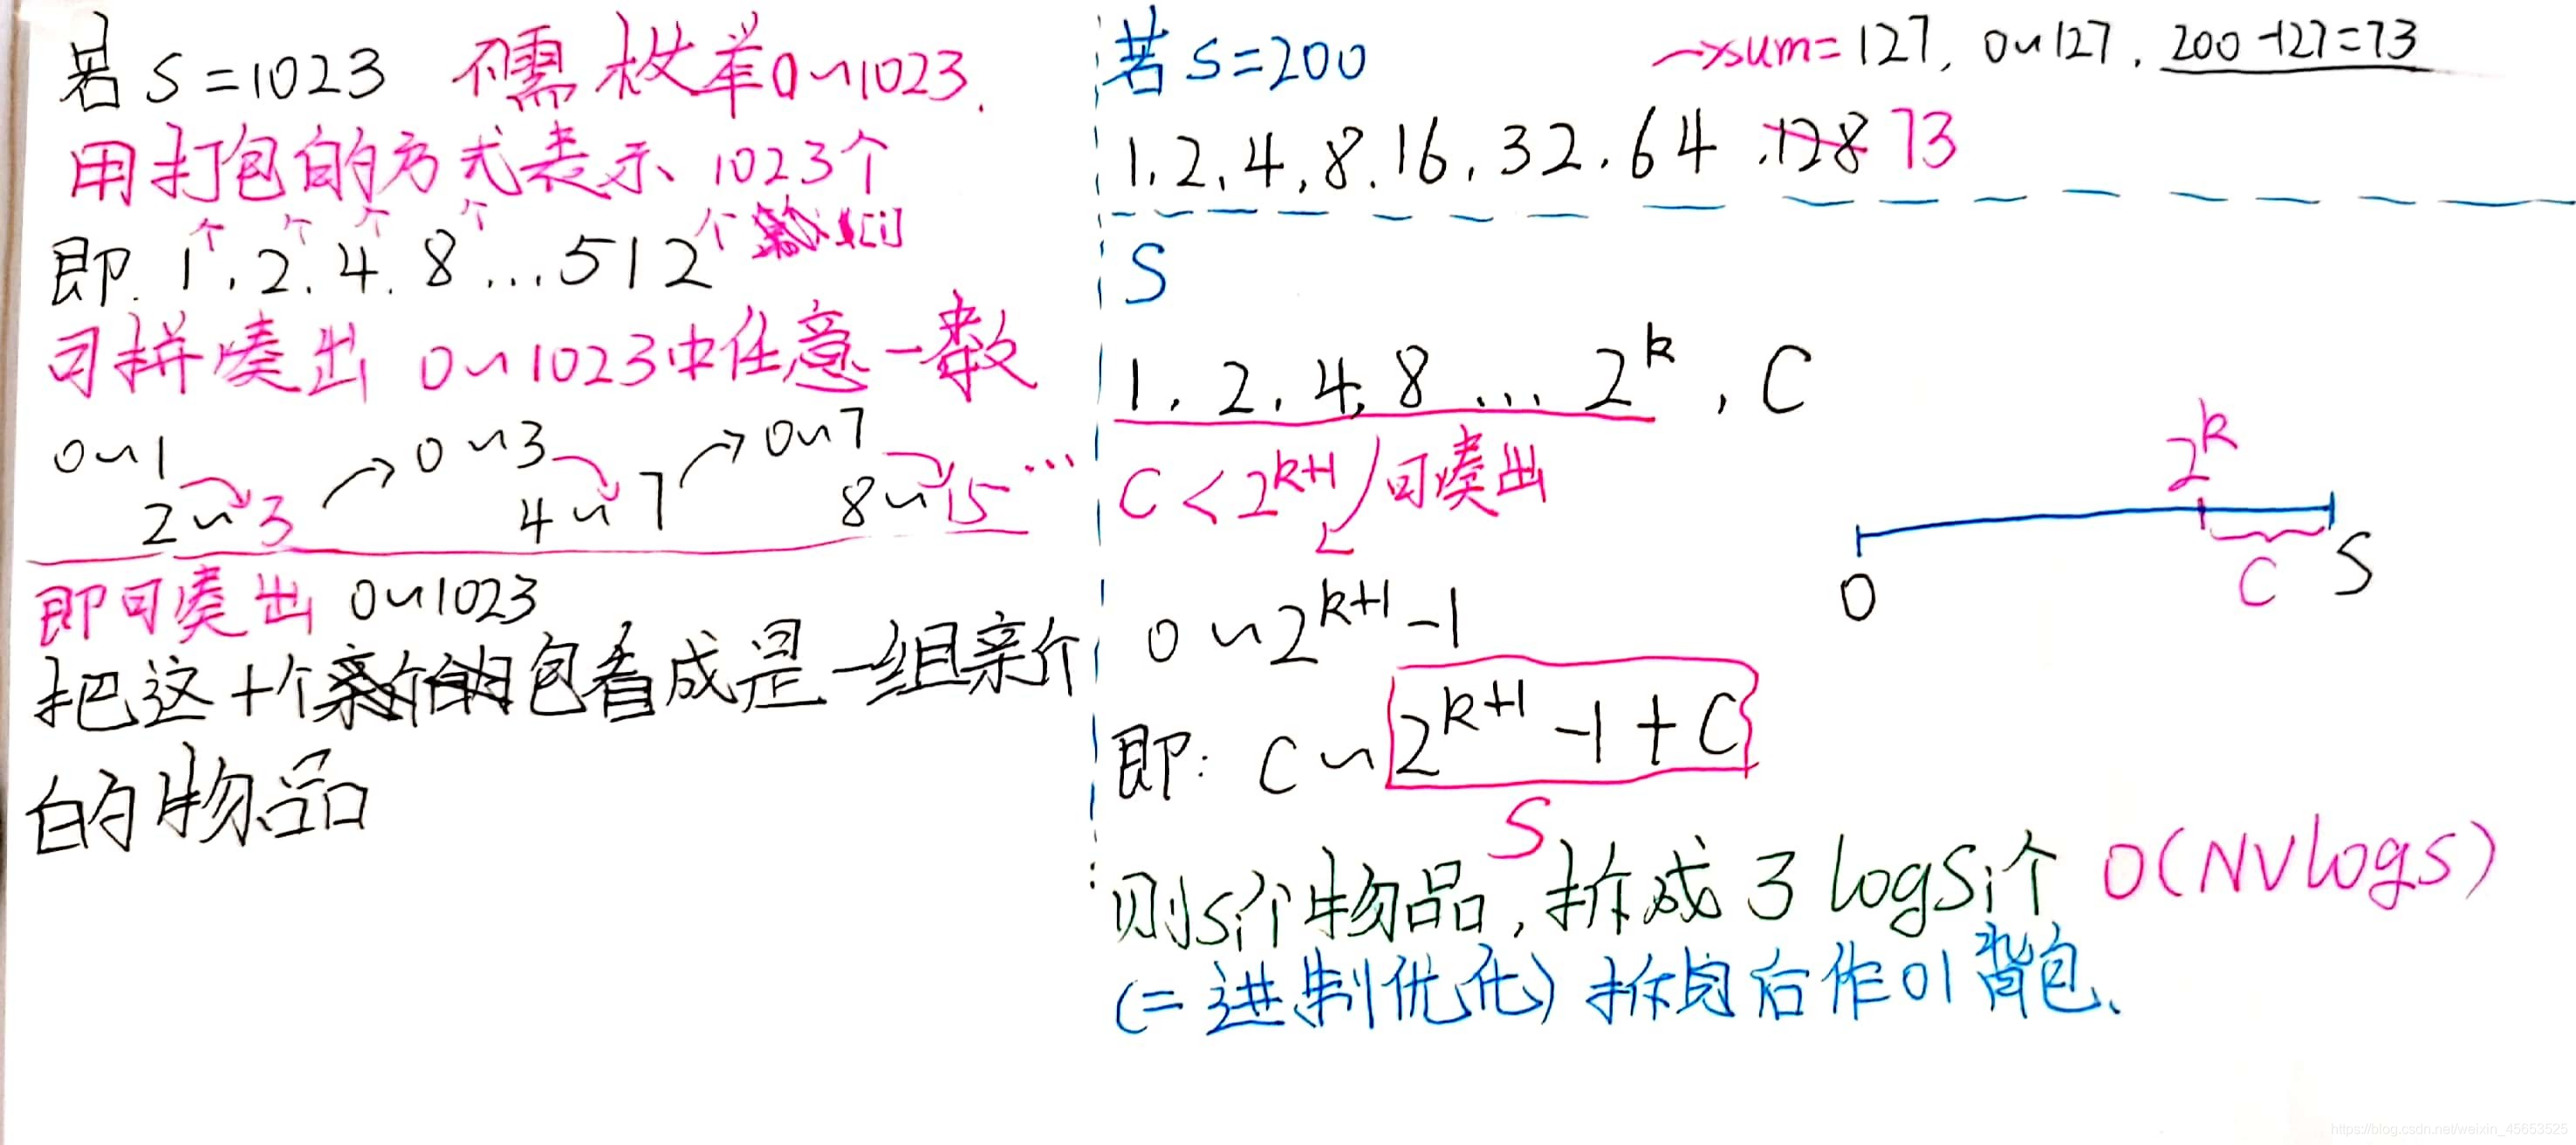 若S=1023 不需枚举0~1023.
用打包的方式表示 1023个
即.1个,2个.4个.8个...512个
可拼凑出 0~1023中任意一数
0~1 → 0~3 → 0~7
2~3 4~7 8~15 ...
即可凑出 0~1023
把这十个包看成是一组亲个
的物品
若S=200 →sum=127, 0~127, 200-127=73
1.2.4.8.16.32.64.128 73
S
1.2.4.8...2^k, C
C<2^{k+1} 可凑出
0~2^{k+1}-1
即: C~2^{k+1}-1+C
S
2^k
0 C S
则Si个物品,拆成了logSi个 O(NVlogS)
(二进制优化) 拆包后作01背包、
https://blog.csdn.net/weixin_45653525